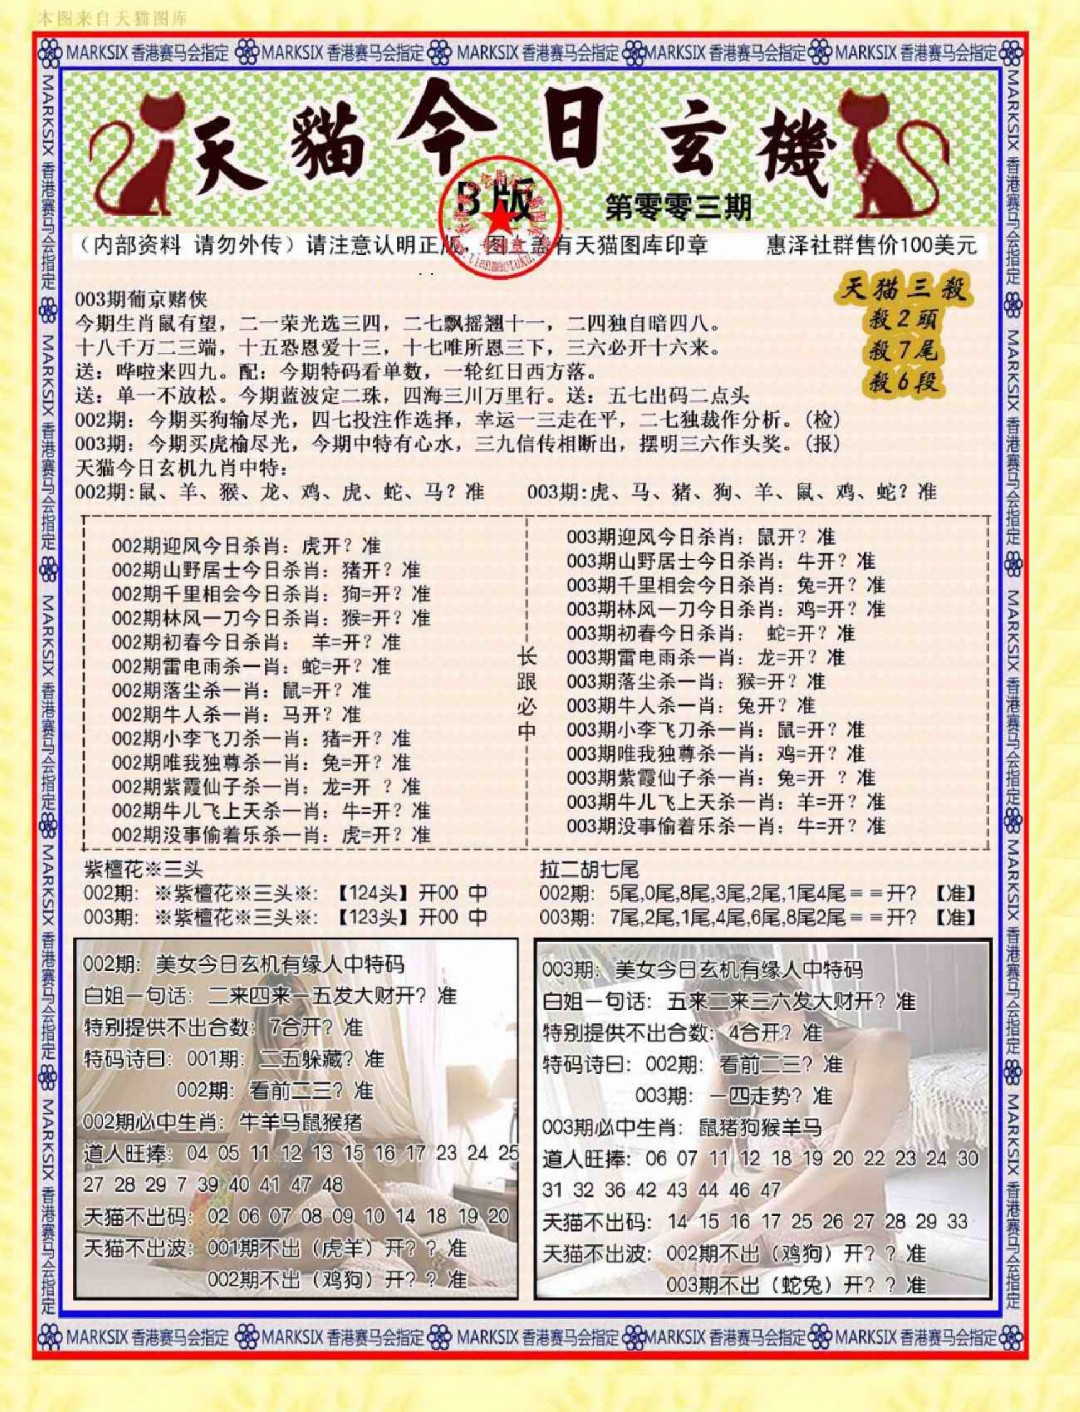 本图来自天猫图库
MARKSIX 香港赛马会指定 MARKSIX 香港赛马会指定 MARKSIX 香港赛马会指定 MARKSIX 香港赛马会指定 MARKSIX 香港赛马会指定
天貓今日玄機
B版
第零零三期
(内部资料 请勿外传)请注意认明正版,图上盖有天猫图库印章 惠泽社群售价100美元
天猫三殺
殺2頭
殺7尾
殺6段
003期葡京赌侠
今期生肖鼠有望,二一荣光选三四,二七飘摇翘十一,二四独自暗四八。
十八千万二三端,十五恐恩爱十三,十七唯所恩三下,三六必开十六来。
送:哗啦来四九。配:今期特码看单数,一轮红日西方落。
送:单一不放松。今期蓝波定二珠,四海三川万里行。送:五七出码二点头
002期:今期买狗输尽光,四七投注作选择,幸运一三走在平,二七独裁作分析。(检)
003期:今期买虎榆尽光,今期中特有心水,三九信传相断出,摆明三六作头奖。(报)
天猫今日玄机九肖中特:
002期:鼠、羊、猴、龙、鸡、虎、蛇、马?准 003期:虎、马、猪、狗、羊、鼠、鸡、蛇?准
002期迎风今日杀肖:虎开?准
002期山野居士今日杀肖:猪开?准
002期千里相会今日杀肖:狗=开?准
002期林风一刀今日杀肖:猴=开?准
002期初春今日杀肖: 羊=开?准
002期雷电雨杀一肖:蛇=开?准
002期落尘杀一肖:鼠=开?准
002期牛人杀一肖:马开?准
002期小李飞刀杀一肖:猪=开?准
002期唯我独尊杀一肖:兔=开?准
002期紫霞仙子杀一肖:龙=开 ?准
002期牛儿飞上天杀一肖:牛=开?准
002期没事偷着乐杀一肖:虎=开?准
长跟必中
003期迎风今日杀肖:鼠开?准
003期山野居士今日杀肖:牛开?准
003期千里相会今日杀肖:兔=开?准
003期林风一刀今日杀肖:鸡=开?准
003期初春今日杀肖: 蛇=开?准
003期雷电雨杀一肖:龙=开?准
003期落尘杀一肖:猴=开?准
003期牛人杀一肖:兔开?准
003期小李飞刀杀一肖:鼠=开?准
003期唯我独尊杀一肖:鸡=开?准
003期紫霞仙子杀一肖:兔=开 ?准
003期牛儿飞上天杀一肖:羊=开?准
003期没事偷着乐杀一肖:牛=开?准
紫檀花※三头
002期: ※紫檀花※三头※: 【124头】开00 中
003期: ※紫檀花※三头※: 【123头】开00 中
拉二胡七尾
002期: 5尾,0尾,8尾,3尾,2尾,1尾4尾==开? 【准】
003期: 7尾,2尾,1尾,4尾,6尾,8尾2尾==开? 【准】
002期:美女今日玄机有缘人中特码
白姐一句话:二来四来一五发大财开?准
特别提供不出合数:7合开?准
特码诗曰:001期:二五躲藏?准
002期:看前二三?准
002期必中生肖:牛羊马鼠猴猪
道人旺捧:04 05 11 12 13 15 16 17 23 24 25
27 28 29 7 39 40 41 47 48
天猫不出码:02 06 07 08 09 10 14 18 19 20
天猫不出波:001期不出(虎羊)开??准
002期不出(鸡狗)开??准
003期:美女今日玄机有缘人中特码
白姐一句话:五来二来三六发大财开?准
特别提供不出合数:4合开?准
特码诗曰:002期:看前二三?准
003期:一四走势?准
003期必中生肖:鼠猪狗猴羊马
道人旺捧:06 07 11 12 18 19 20 22 23 24 30
31 32 36 42 43 44 46 47
天猫不出码:14 15 16 17 25 26 27 28 29 33
天猫不出波:002期不出(鸡狗)开??准
003期不出(蛇兔)开??准
MARKSIX 香港赛马会指定 MARKSIX 香港赛马会指定 MARKSIX 香港赛马会指定 MARKSIX 香港赛马会指定 MARKSIX 香港赛马会指定
MARKSIX 香港赛马会指定 MARKSIX 香港赛马会指定 MARKSIX 香港赛马会指定 MARKSIX 香港赛马会指定 MARKSIX 香港赛马会指定
MARKSIX 香港赛马会指定 MARKSIX 香港赛马会指定 MARKSIX 香港赛马会指定 MARKSIX 香港赛马会指定 MARKSIX 香港赛马会指定